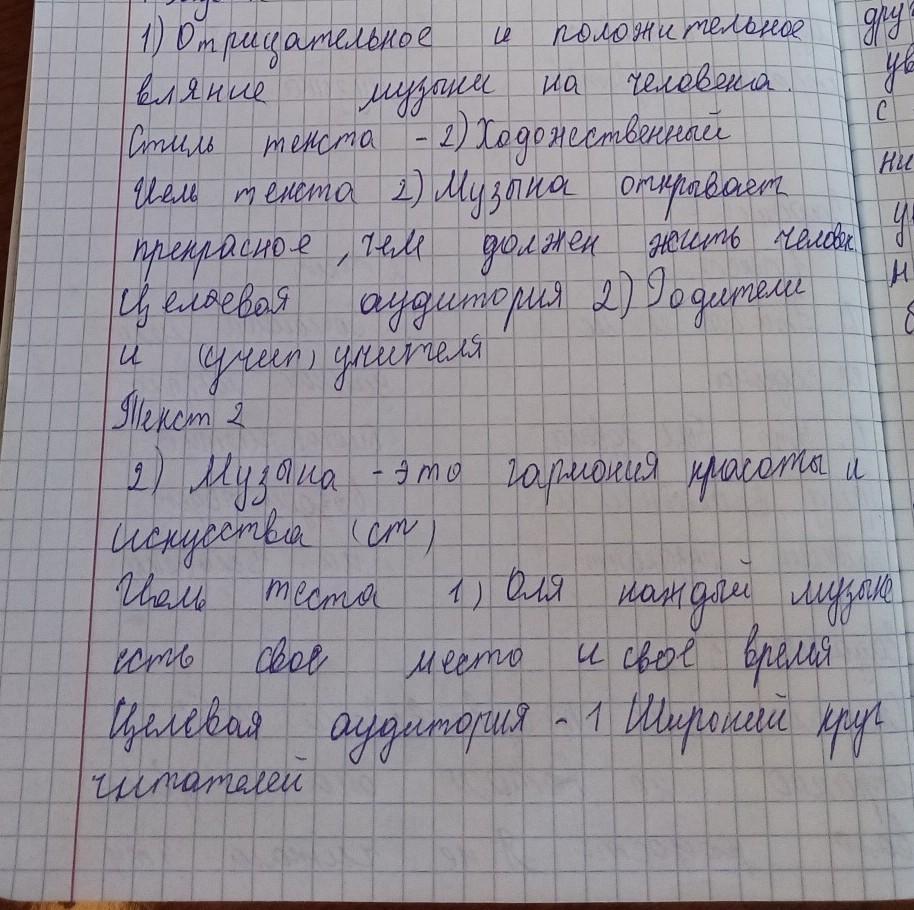 1) Отрицательное и положительное
вляние музыки на человека.
Стиль текста - 2) Ходожественный
Цель текста 2) Музыка открывает
прекрасное, чем должен жить человек.
Целаевая аудитория 2) Родители
и (учит) учителя
Текст 2
2) Музыка - это гармония красоты и
искусства (ст)
Цель теста 1) Для каждый музыке
есть свое место и своё время
Целевая аудитория - 1 Широкий круг
читателей
дру
ув
с
ни
у
н